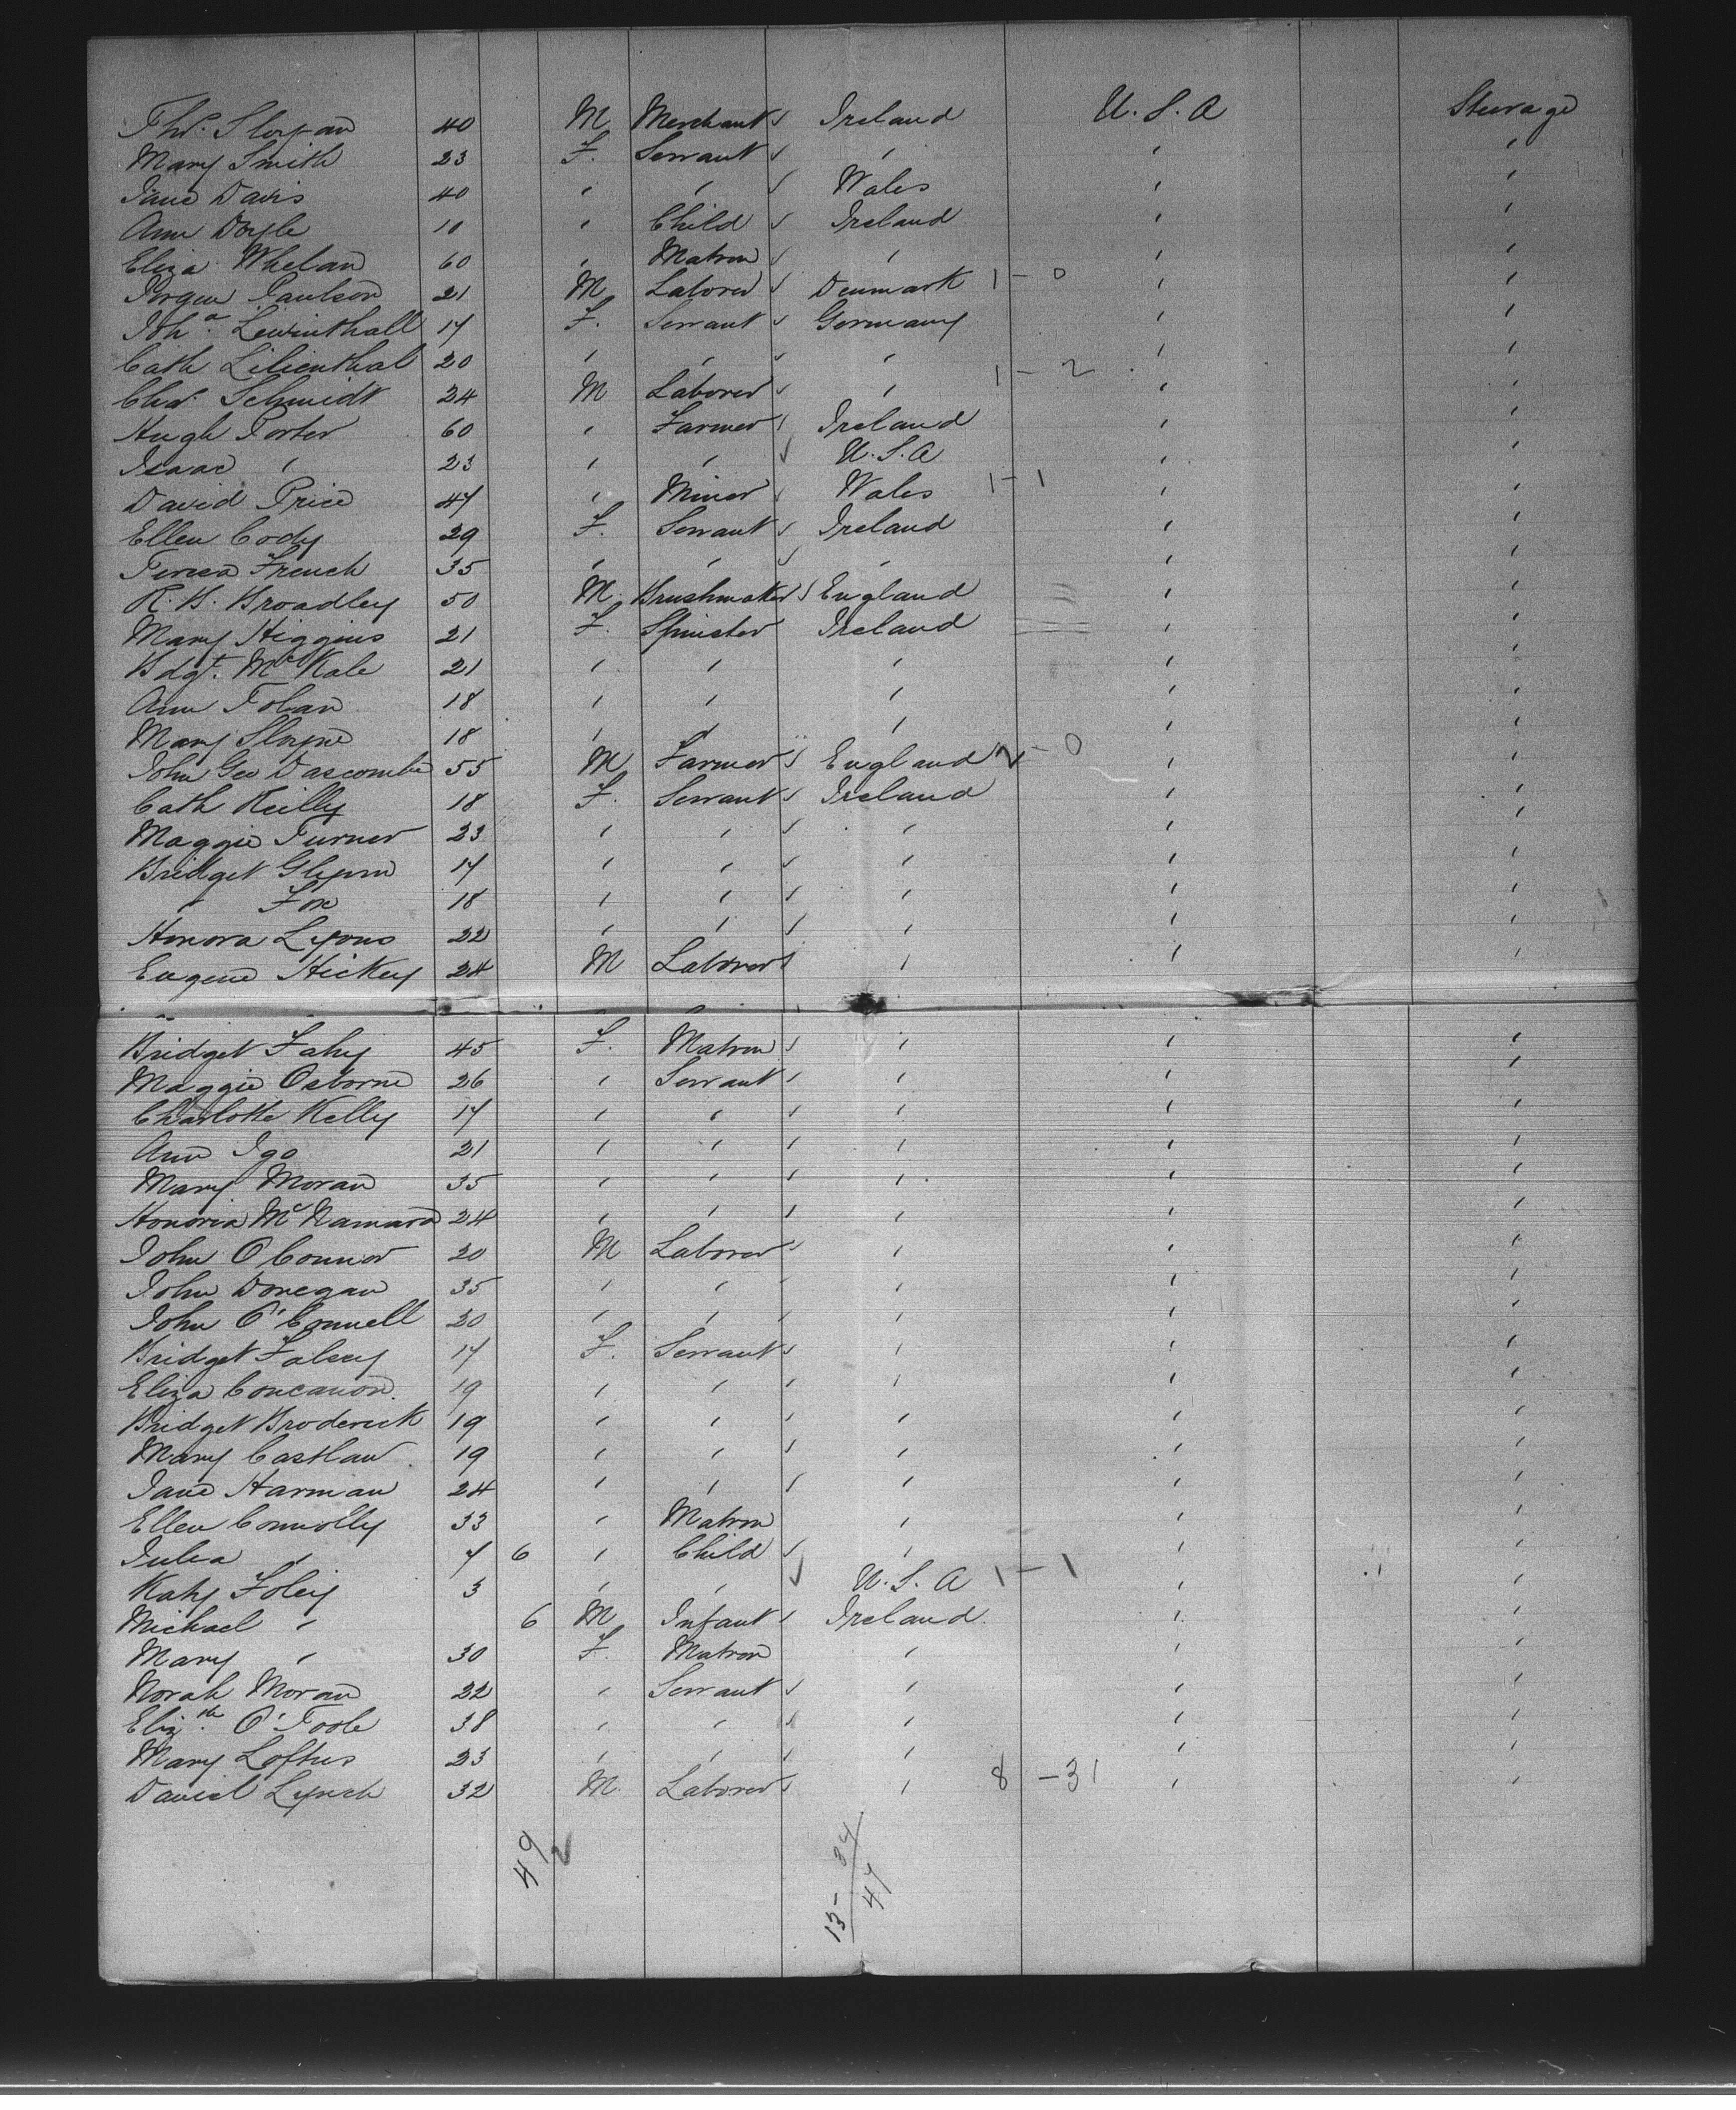 Thos. Sloyan 40 M Merchant Ireland U.S.A Steerage
Mary Smith 23 F. Servant " " "
Jane Davis 40 " " Wales " "
Ann Doyle 10 " Child Ireland " "
Eliza Whelan 60 " Matron " " "
Jorgen Paulson 21 M Laborer Denmark 1 - 0 " "
Joha. Lewinthall 17 F. Servant Germany " "
Cath Lilienthal 20 " " " " "
Chas. Schmidt 24 M Laborer " 1 - 2 " "
Hugh Porter 60 " Farmer Ireland " "
Isaac " 23 " " U.S.A " "
David Price 47 " Miner Wales 1 - 1 " "
Ellen Cody 29 F. Servant Ireland " "
Teresa French 35 " " " " "
R. B. Broadley 50 M. Brushmaker England " "
Mary Higgins 21 F. Spinster Ireland " "
Bdgt. McKale 21 " " " " "
Ann Tolan 18 " " " " "
Mary Sloyne 18 " " " " "
John Geo Dascombe 55 M Farmer England - 0 " "
Cath Reilly 18 F. Servant Ireland " "
Maggie Turner 23 " " " " "
Bridget Glynn 17 " " " " "
" Fox 18 " " " " "
Honora Lyons 22 " " " " "
Eugene Hickey 24 M Laborer " " "
Bridget Fahy 45 F. Matron " " "
Maggie Osborne 26 " Servant " " "
Charlotte Kelly 17 " " " " "
Ann Igo 21 " " " " "
Mary Moran 35 " " " " "
Honoria McNamara 24 " " " " "
John O'Connor 20 M Laborer " " "
John Donegan 35 " " " " "
John O'Connell 20 " " " " "
Bridget Falsey 17 F. Servant " " "
Eliza Concanon. 19 " " " " "
Bridget Broderick 19 " " " " "
Mary Casllaw 19 " " " " "
Jane Harman 24 " " " " "
Ellen Connolly 33 " Matron " " "
Julia " 7 6 " Child " " "
Katy Foley 3 " " U.S.A 1 - 1 " "
Michael " 6 M Infant Ireland. " "
Mary " 30 F. Matron " " "
Norah Moran 22 " Servant " " "
Elizth. O'Toole 38 " " " " "
Mary Loftus 23 " " " " "
David Lynch 32 M. Laborer " 8 - 31 " "
49
2
13 - 34
47